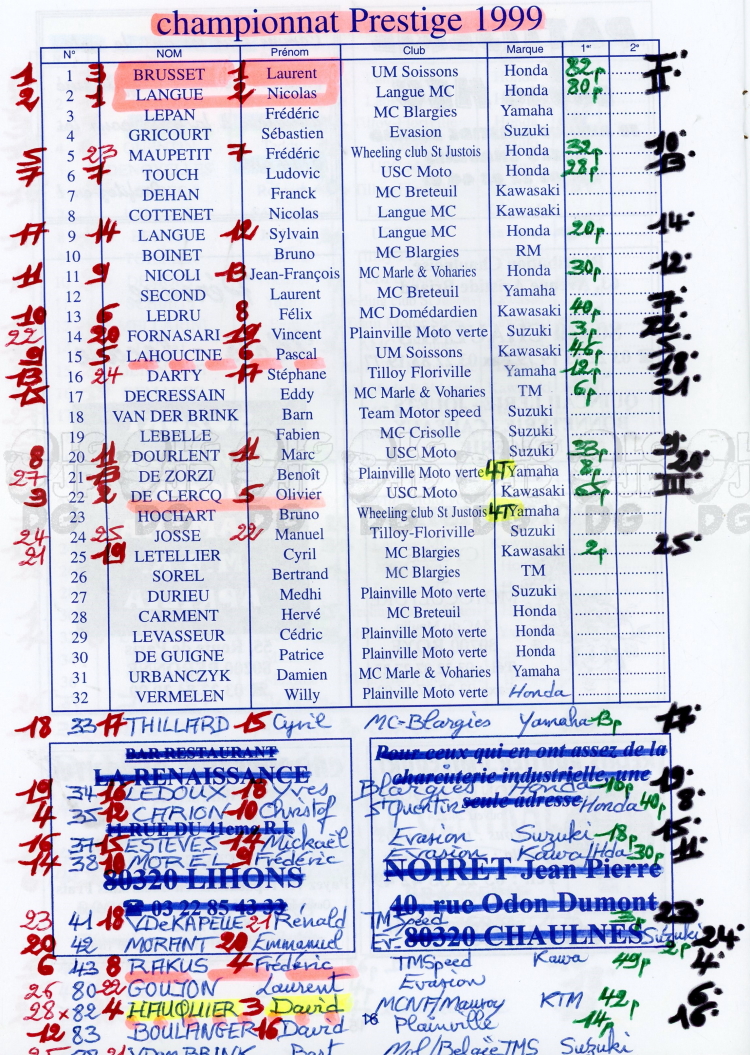 championnat Prestige 1999
N° NOM Prénom Club Marque 1er 2e
1 1 3 BRUSSET 1 Laurent UM Soissons Honda 82p I.
2 2 1 LANGUE 2 Nicolas Langue MC Honda 80p II.
3 LEPAN Frédéric MC Blargies Yamaha
4 GRICOURT Sébastien Evasion Suzuki
5 5 23 MAUPETIT 7 Frédéric Wheeling club St Justois Honda 32p 10.
7 6 7 TOUCH Ludovic USC Moto Honda 28p 13.
7 DEHAN Franck MC Breteuil Kawasaki
8 COTTENET Nicolas Langue MC Kawasaki
17 9 14 LANGUE 12 Sylvain Langue MC Honda 20p 14.
10 BOINET Bruno MC Blargies RM
11 11 9 NICOLI 13 Jean-François MC Marle & Voharies Honda 30p 12.
12 SECOND Laurent MC Breteuil Yamaha
10 13 6 LEDRU 8 Félix MC Domédardien Kawasaki 40p 7.
22 14 20 FORNASARI 19 Vincent Plainville Moto verte Suzuki 3p 22.
9 15 5 LAHOUCINE 6 Pascal UM Soissons Kawasaki 46p 5.
13 16 24 DARTY 17 Stéphane Tilloy Floriville Yamaha 12p 18.
15 17 DECRESSAIN Eddy MC Marle & Voharies TM 6p 21.
18 VAN DER BRINK Barn Team Motor speed Suzuki
19 LEBELLE Fabien MC Crisolle Suzuki
8 20 11 DOURLENT 11 Marc USC Moto Suzuki 33p 9.
27 21 13 DE ZORZI Benoît Plainville Moto verte 4T Yamaha 8p 20.
3 22 2 DE CLERCQ 5 Olivier USC Moto Kawasaki III
23 HOCHART Bruno Wheeling club St Justois 4T Yamaha
24 24 25 JOSSE 22 Manuel Tilloy-Floriville Suzuki
21 25 19 LETELLIER Cyril MC Blargies Kawasaki 2p 25.
26 SOREL Bertrand MC Blargies TM
27 DURIEU Medhi Plainville Moto verte Suzuki
28 CARMENT Hervé MC Breteuil Honda
29 LEVASSEUR Cédric Plainville Moto verte Honda
30 DE GUIGNE Patrice Plainville Moto verte Honda
31 URBANCZYK Damien MC Marle & Voharies Yamaha
32 VERMELEN Willy Plainville Moto verte Honda
18 33 17 THILLARD 15 Cyril MC-Blargies Yamaha 13p 17.
BAR RESTAURANT Pour ceux qui en ont assez de la
LA RENAISSANCE charcuterie industrielle, une
19 34 16 LEDOUX 18 Yves Blargies Honda 10p 19.
seule adresse
4 35 12 CARION 10 Christof St Quentin Honda 40p 8.
11 RUE DU 41eme R.I.
16 37 15 ESTEVES 14 Mickaël Evasion Suzuki 18p 15.
14 38 10 MOREL 9 Frédéric Evasion Kawa/Hda 30p 11.
80320 LIHONS NOIRET Jean Pierre
☎ 03 22 85 43 33 40, rue Odon Dumont
23 41 18 VDeKAPELLE 21 Rénald TMSpeed 3p 23.
80320 CHAULNES
20 42 MORANT 20 Emmanuel EV. Suzuki 2p 24.
6 43 8 RAKUS 4 Frédéric TMSpeed Kawa 49p 4.
26 80 22 GOUJON Laurent Evasion
28 x 82 4 HAUQUIER 3 David MCNF/Mauroy KTM 42p 6.
12 83 BOULANGER 16 David Plainville 14p 16.
VDen BRINK Bart Mol/Belgïe TMS Suzuki